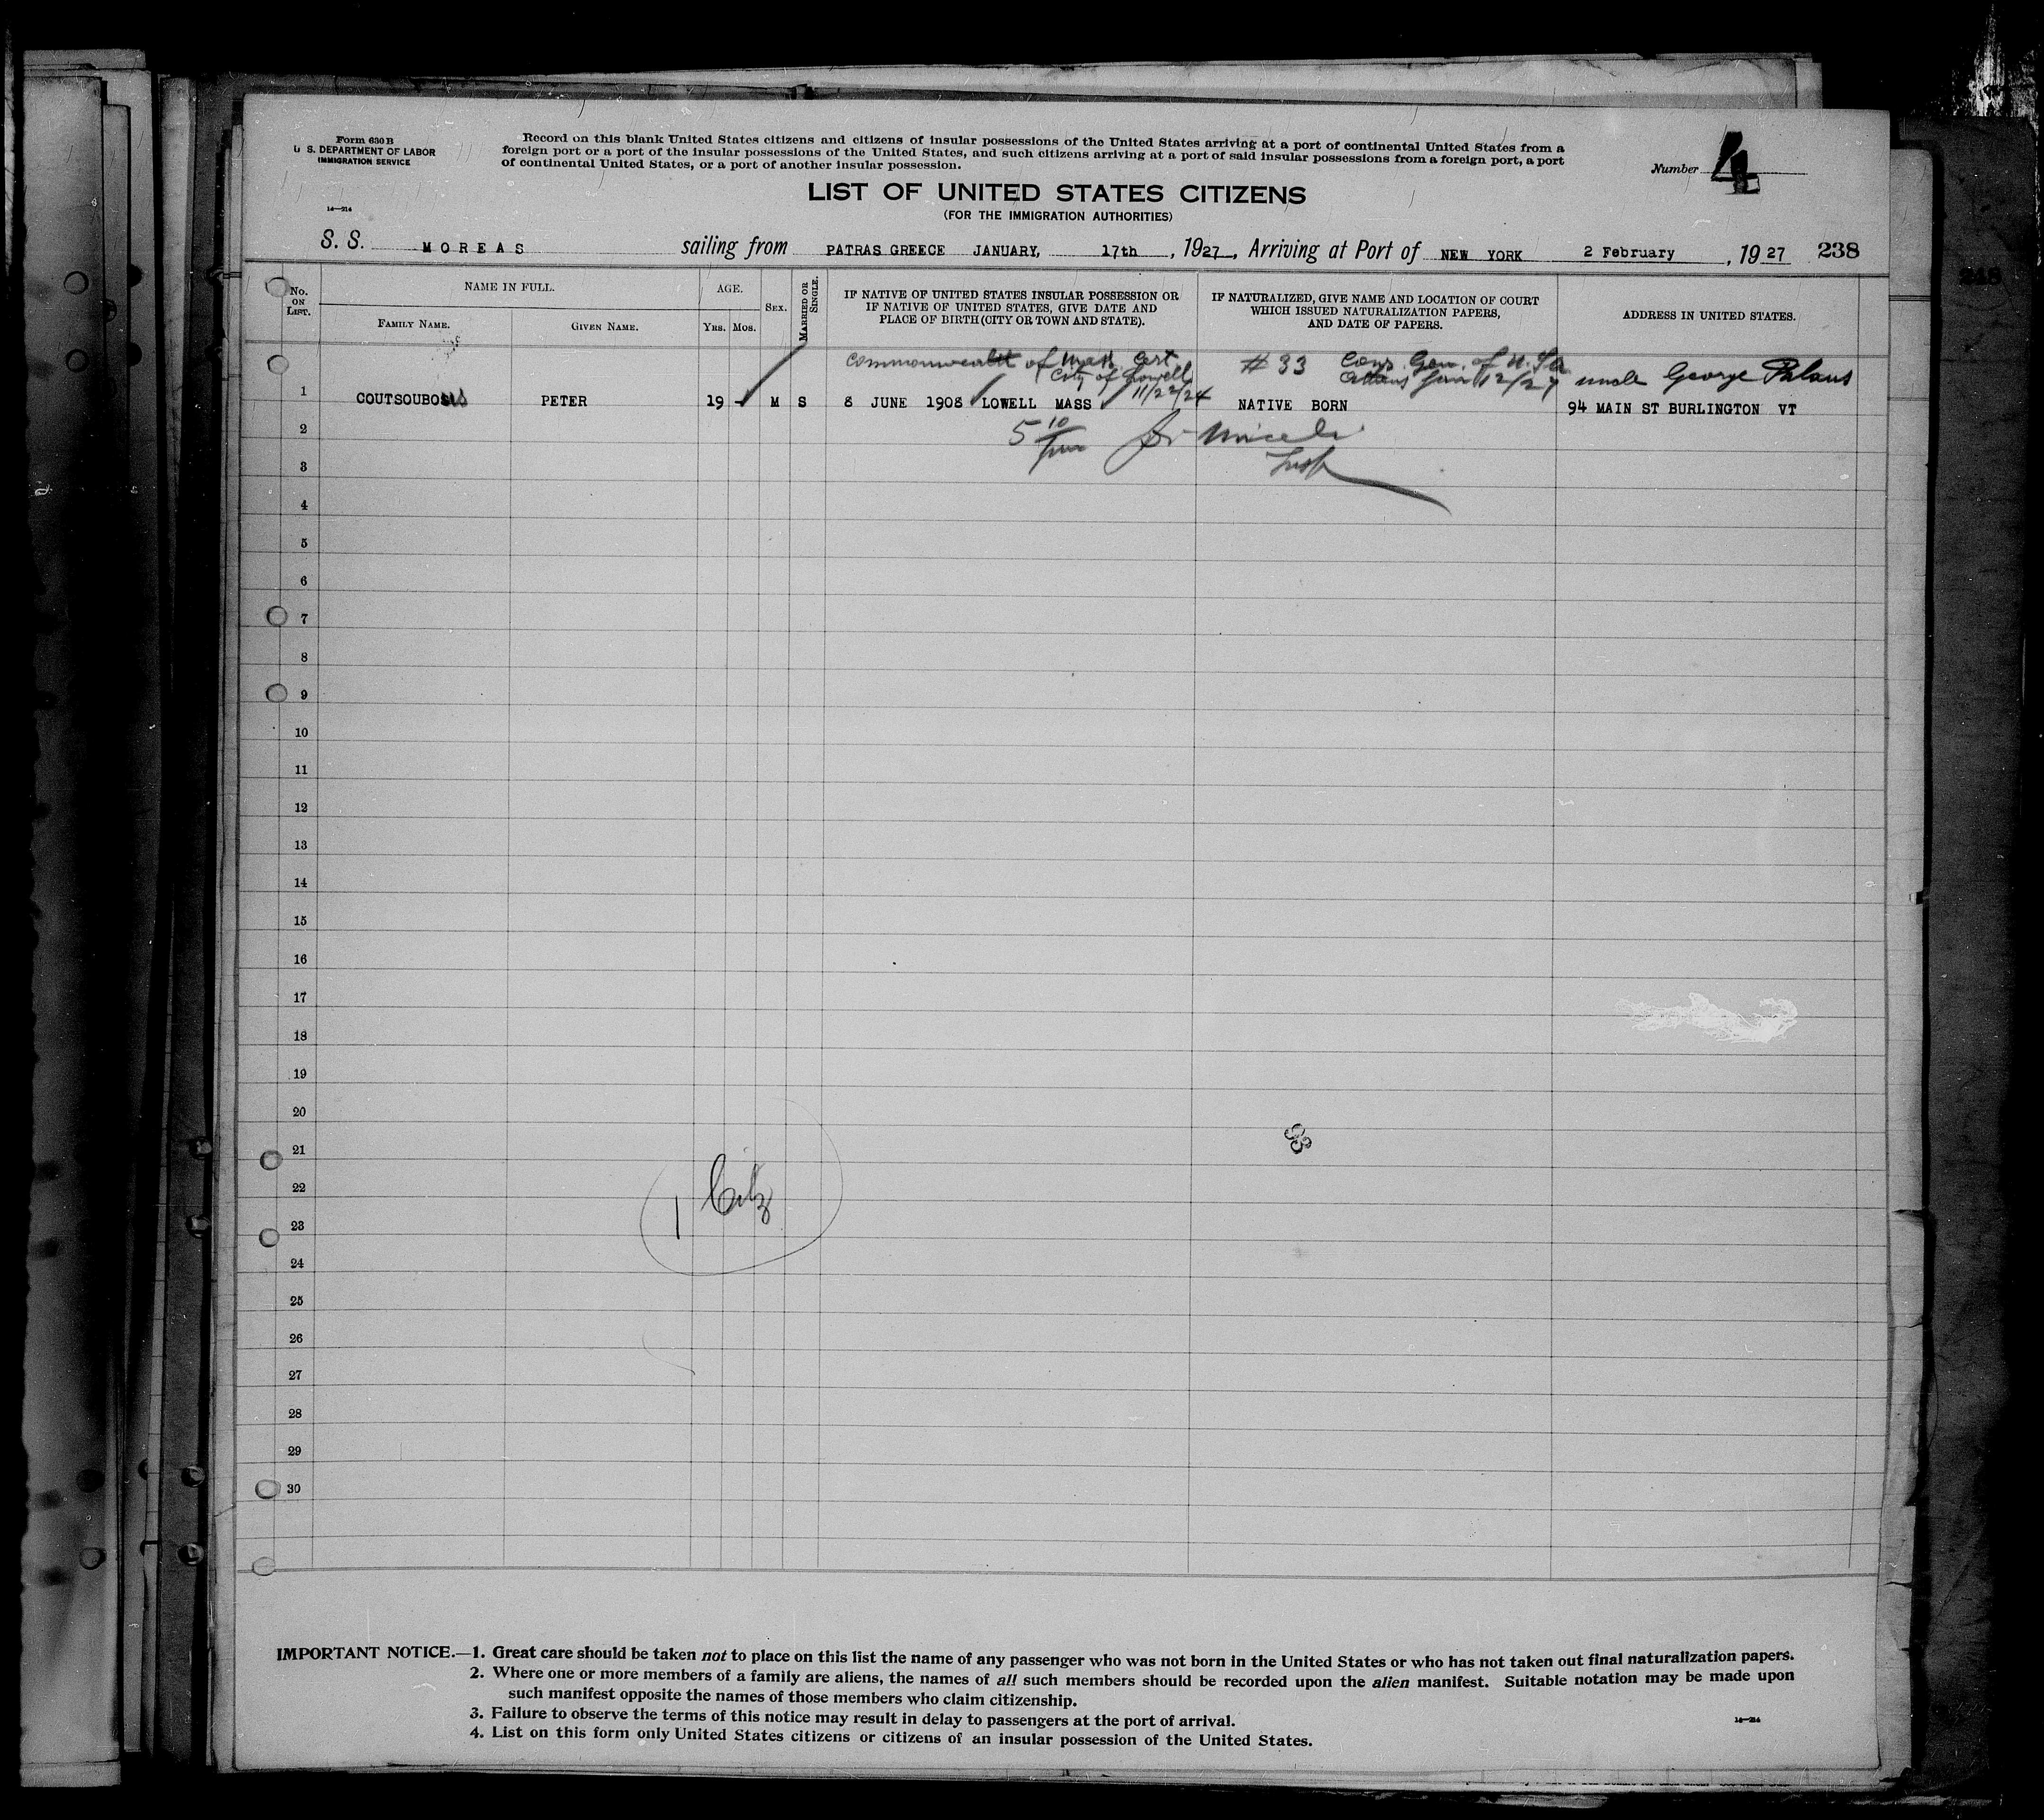 Form 630 B
U. S. DEPARTMENT OF LABOR
IMMIGRATION SERVICE
14—214
Record on this blank United States citizens and citizens of insular possessions of the United States arriving at a port of continental United States from a
foreign port or a port of the insular possessions of the United States, and such citizens arriving at a port of said insular possessions from a foreign port, a port
of continental United States, or a port of another insular possession.
Number 4
LIST OF UNITED STATES CITIZENS
(FOR THE IMMIGRATION AUTHORITIES)
S. S. MOREAS sailing from PATRAS GREECE JANUARY, 17th, 1927, Arriving at Port of NEW YORK 2 February, 1927 238
No. ON LIST.
NAME IN FULL.
FAMILY NAME.
GIVEN NAME.
AGE.
YRS. MOS.
SEX.
MARRIED OR SINGLE.
IF NATIVE OF UNITED STATES INSULAR POSSESSION OR
IF NATIVE OF UNITED STATES, GIVE DATE AND
PLACE OF BIRTH (CITY OR TOWN AND STATE).
IF NATURALIZED, GIVE NAME AND LOCATION OF COURT
WHICH ISSUED NATURALIZATION PAPERS,
AND DATE OF PAPERS.
ADDRESS IN UNITED STATES.
Commonwealth of Mass. Cert # 33 Cons. Gen. of U.S.A.
City of Lowell
11/22/24 12/27 uncle George
1 COUTSOUBO PETER 19 - M S 8 JUNE 1908 LOWELL MASS NATIVE BORN 94 MAIN ST BURLINGTON VT
2
5 10
3
4
5
6
7
8
9
10
11
12
13
14
15
16
17
18
19
20
21
22
1 Citz
23
24
25
26
27
28
29
30
IMPORTANT NOTICE.—1. Great care should be taken not to place on this list the name of any passenger who was not born in the United States or who has not taken out final naturalization papers.
2. Where one or more members of a family are aliens, the names of all such members should be recorded upon the alien manifest. Suitable notation may be made upon
such manifest opposite the names of those members who claim citizenship.
3. Failure to observe the terms of this notice may result in delay to passengers at the port of arrival.
4. List on this form only United States citizens or citizens of an insular possession of the United States.
14—214